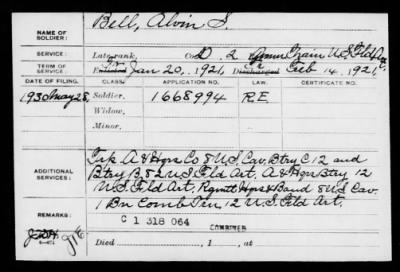 NAME OF SOLDIER: Bell, Alvin S.
SERVICE: Late rank, Co D, 2 Amm Train U.S. Fld Art
TERM OF SERVICE: Enlisted Jan 20, 1921, Discharged Feb 14, 1921
DATE OF FILING. CLASS. APPLICATION NO. LAW. CERTIFICATE NO.
1930 May 28, Soldier, 1668994 R.E.
Widow,
Minor,
Trk A & Hqrs Co 8 U.S. Cav, Btry C 12 and
ADDITIONAL SERVICES: Btry B 82 U.S. Fld Art. A & Hqrs Btry 12
U.S. Fld Art, Rgmtl Hqrs & Band 8 U.S. Cav.
REMARKS: 1 Bn Comb Trn 12 U.S. Fld Art.
C 1 318 064
COMBINED
Died , 1 , at